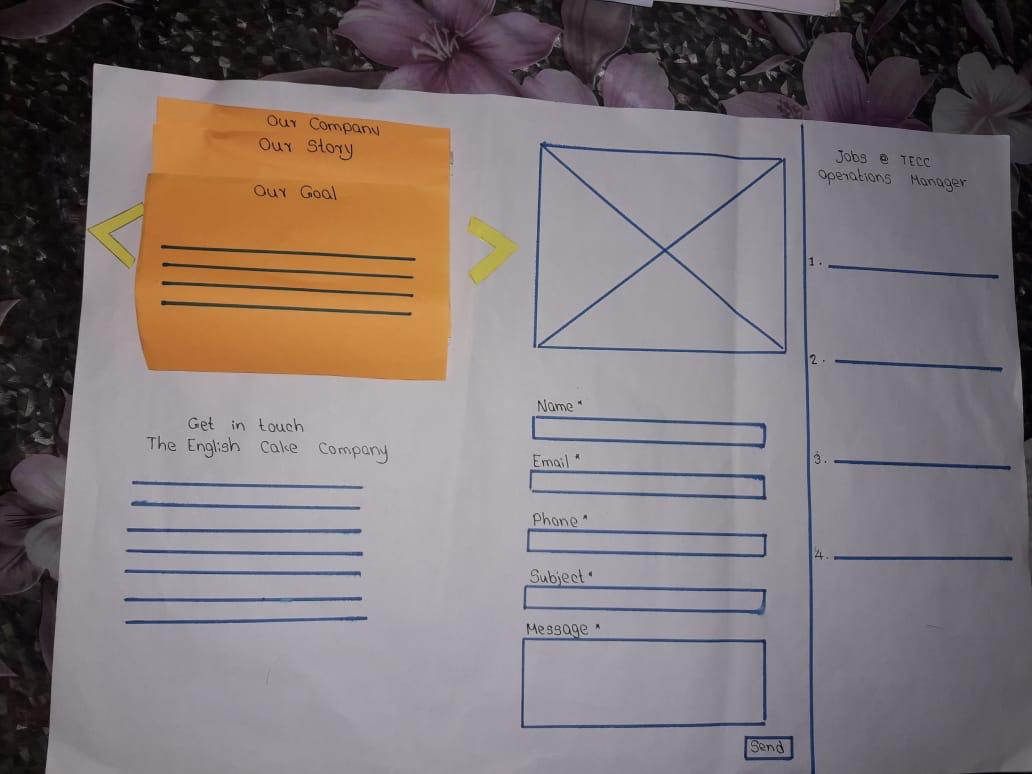 Our Company
Our Story
Our Goal
Get in touch
The English Cake Company
Name *
Email *
Phone *
Subject *
Message *
Send
Jobs @ TECC
Operations Manager
1.
2.
3.
4.